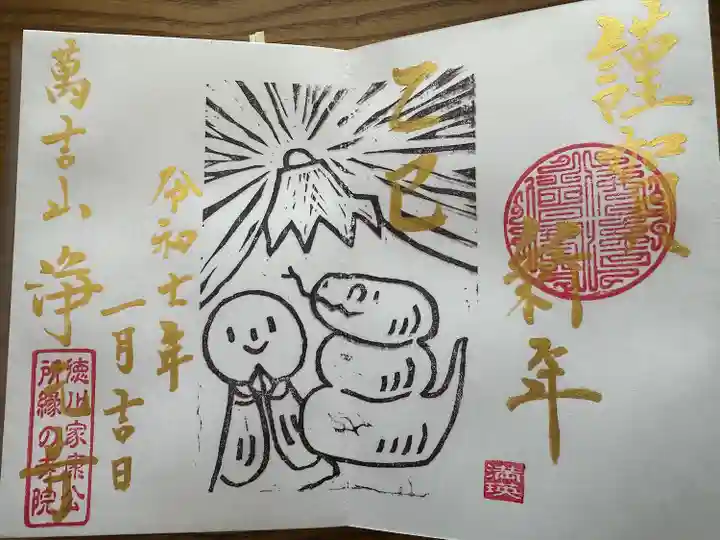 謹賀
新年
乙巳
令和七年
一月吉日
萬吉山
浄元寺
徳川家康公
所縁の寺院
満瑛